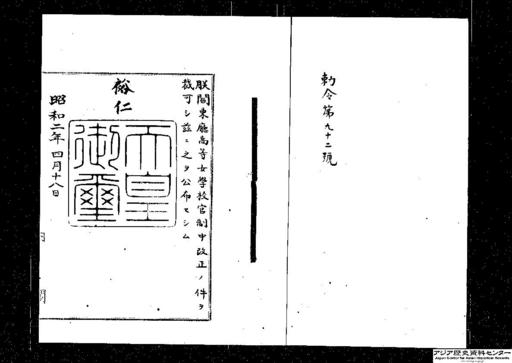 勅令第九十二號
朕關東廳高等女學校官制中改正ノ件ヲ
裁可シ茲ニ之ヲ公布セシム
裕仁
天皇
御璽
昭和二年四月十八日
アジア歴史資料センター
Japan Center for Asian Historical Records